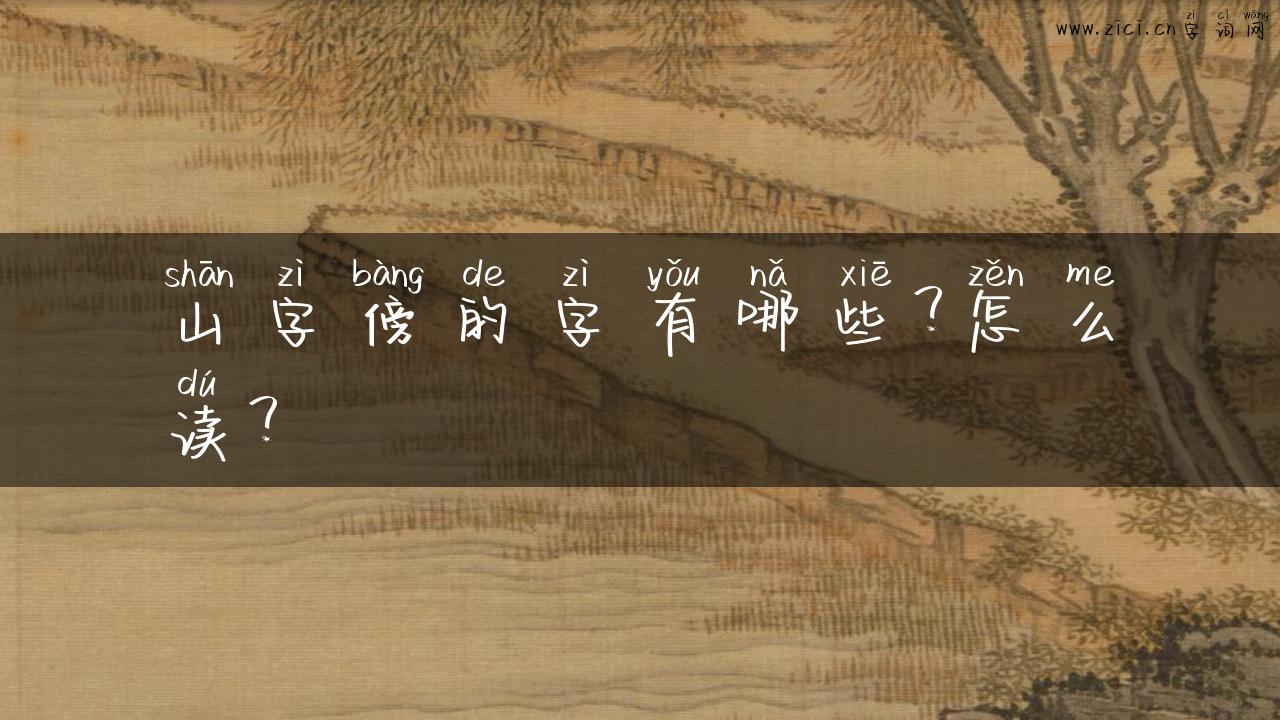 zì cí wǎng
www.zici.cn字词网
shān zì bàng de zì yǒu nǎ xiē zěn me
山字傍的字有哪些?怎么
dú
读?